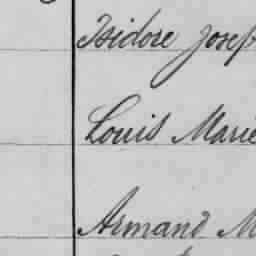 Isidore Josep
Louis Marie
Armand M